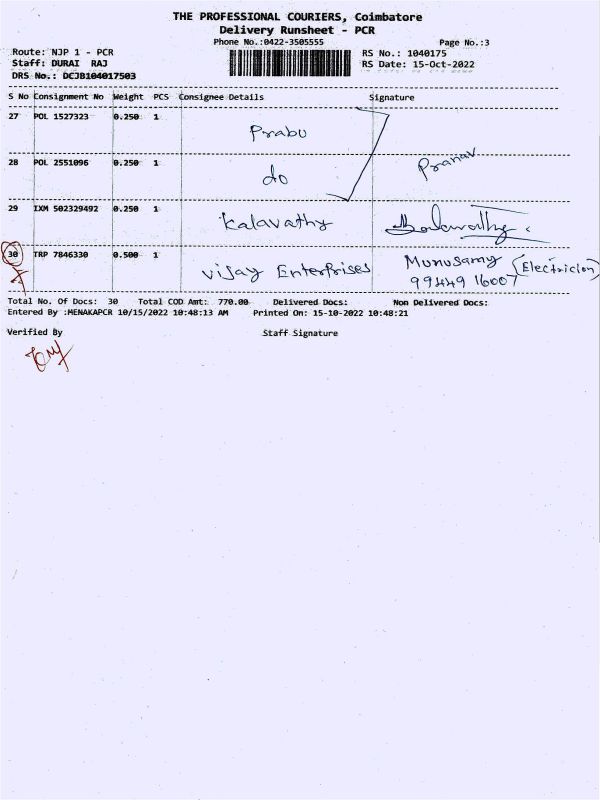 THE PROFESSIONAL COURIERS, Coimbatore
Delivery Runsheet - PCR
Phone No.:0422-3505555 Page No.:3
Route: NJP 1 - PCR RS No.: 1040175
Staff: DURAI RAJ RS Date: 15-Oct-2022
DRS No.: DCJB104017503
S No Consignment No Weight PCS Consignee Details Signature
27 POL 1527323 0.250 1 Prabu
28 POL 2551096 0.250 1 do Pranav
29 IXM 502329492 0.250 1 Kalavathy
30 TRP 7846330 0.500 1 Vijay Enterprises Munusamy (Electrician)
99449 16007
Total No. Of Docs: 30 Total COD Amt: 770.00 Delivered Docs: Non Delivered Docs:
Entered By :MENAKAPCR 10/15/2022 10:48:13 AM Printed On: 15-10-2022 10:48:21
Verified By Staff Signature